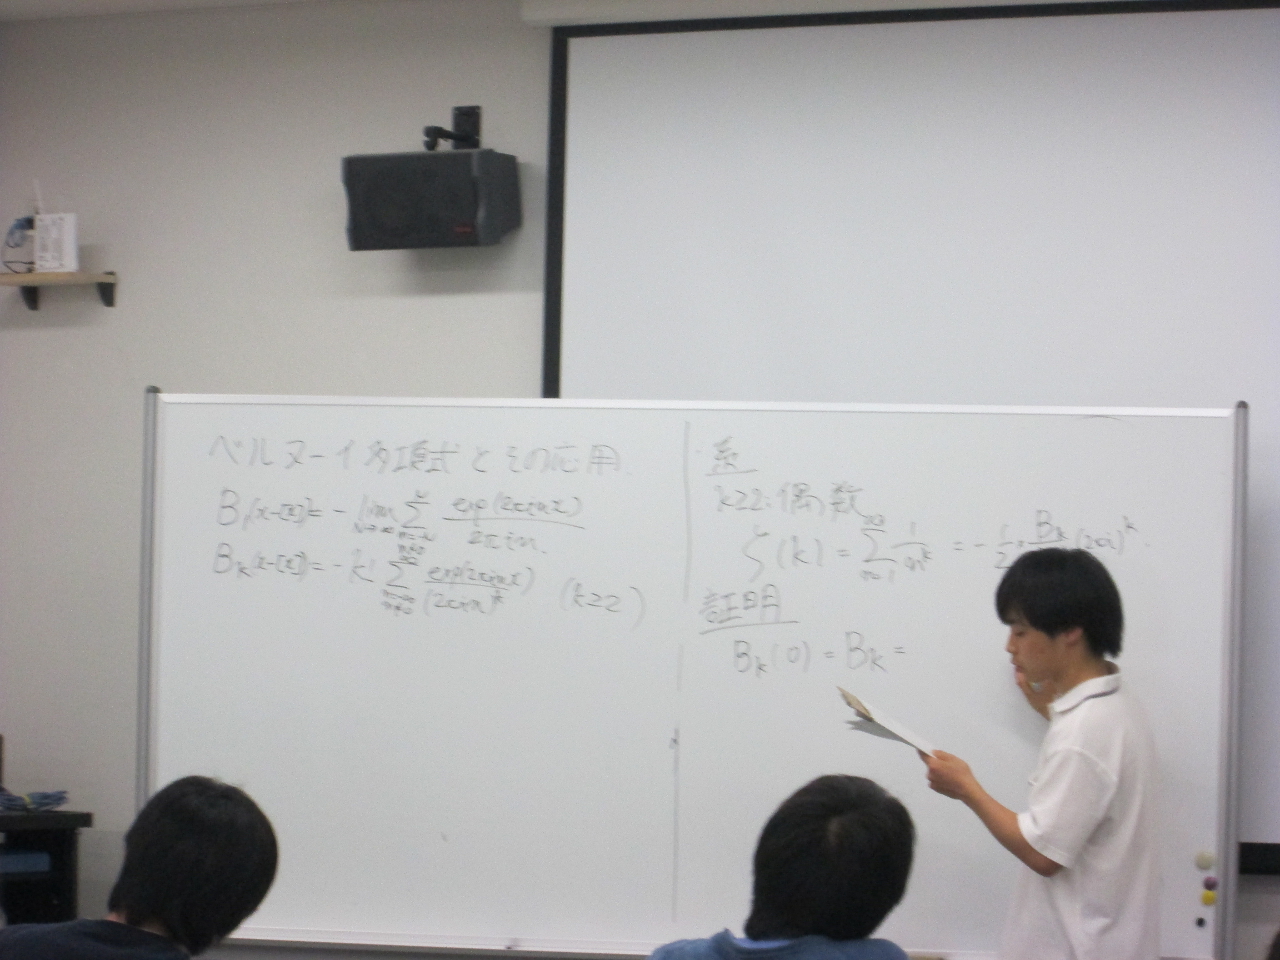 ベルヌーイ多項式とその応用.
B₁(x-[x]) = - lim_{N→∞} Σ_{n=-N, n≠0}^{N} exp(2πinx) / 2πin.
B_k(x-[x]) = -k! Σ_{n=-∞, n≠0}^{∞} exp(2πinx) / (2πin)^k (k≥2)
系
k≥2:偶数
ζ(k) = Σ_{n=1}^{∞} 1/n^k = - 1/2 · B_k (2πi)^k.
証明
B_k(0) = B_k =